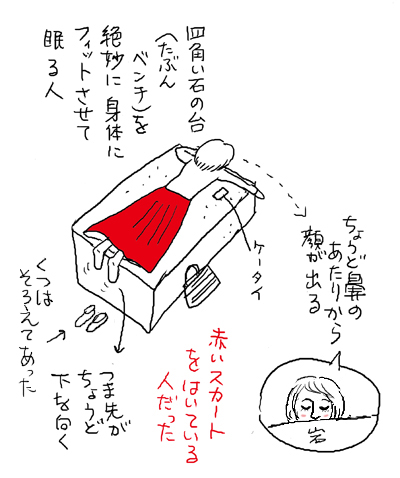 四角い石の台
(たぶん
ベンチ)を
絶妙に身体に
フィットさせて
眠る人
ちょうど鼻の
あたりから
顔が出る
ケータイ
くつは
そろえてあった
つま先が
ちょうど
下を向く
赤いスカート
をはいている
人だった
岩